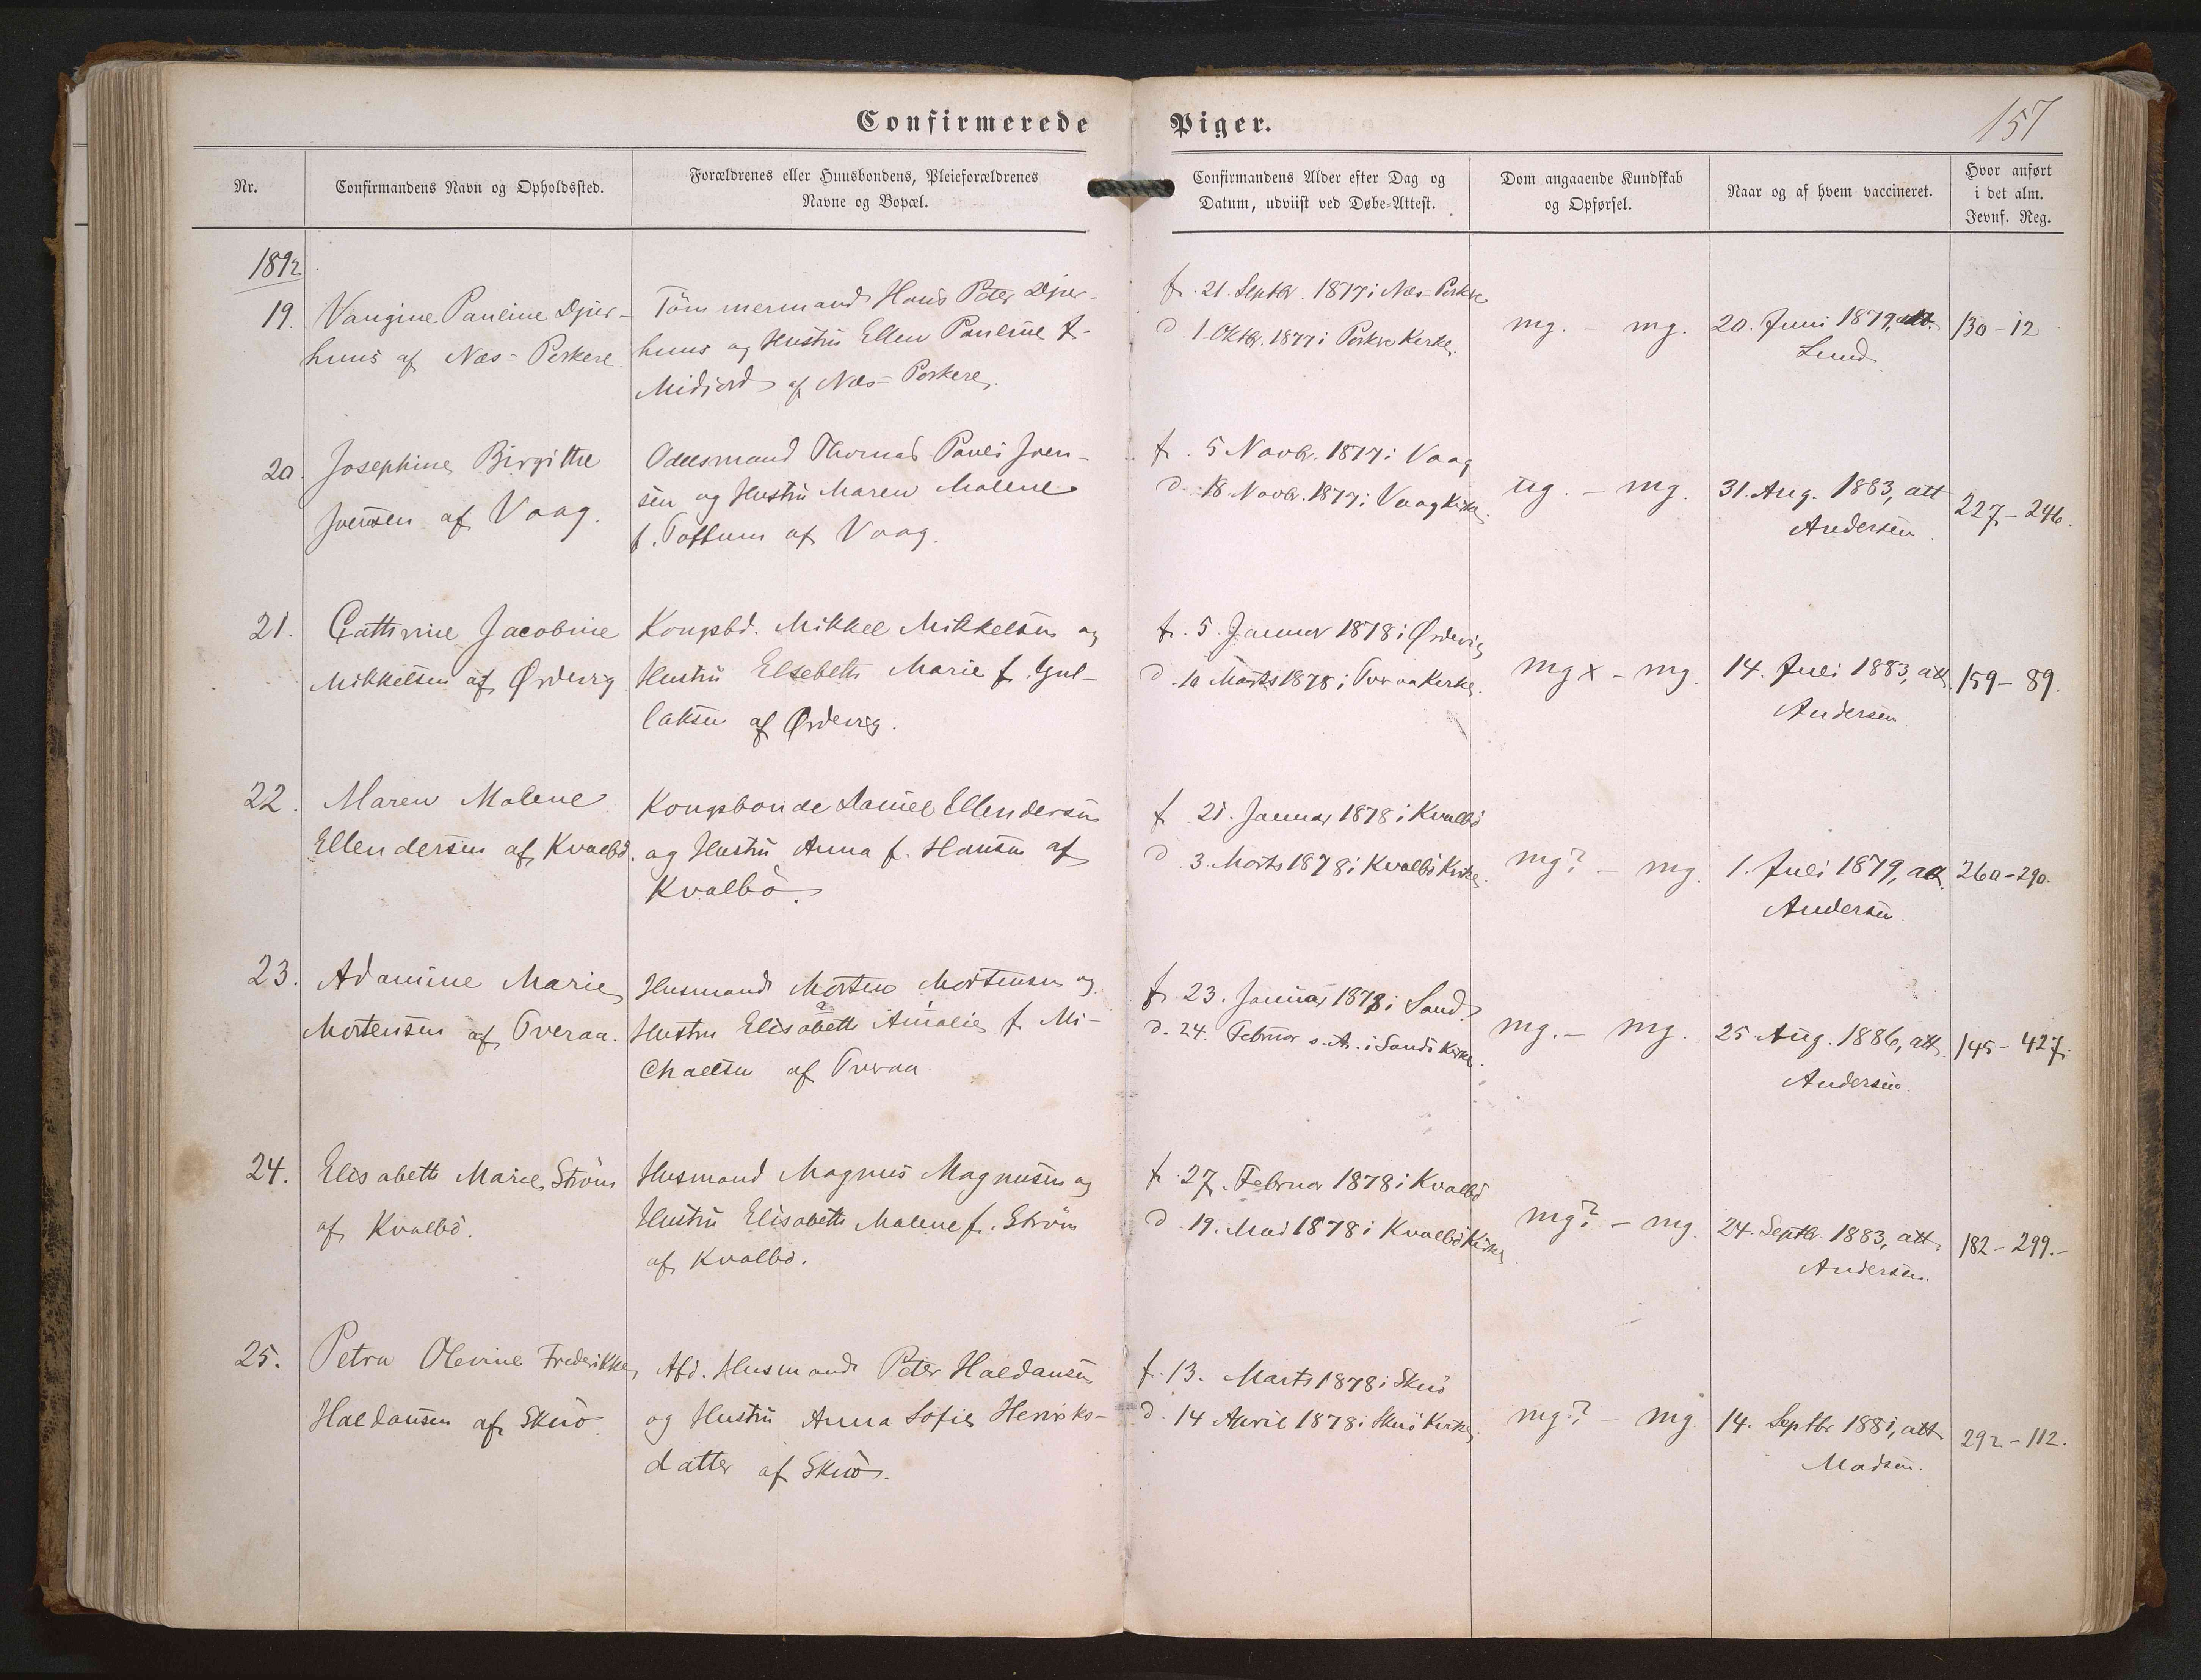 Confirmerede Piger.
157
Nr.
Confirmandens Navn og Opholdssted.
Forældrenes eller Huusbondens, Pleieforældrenes
Navne og Bopæl.
Confirmandens Alder efter Dag og
Datum, udviist ved Døbe-Attest.
Dom angaaende Kundskab
og Opførsel.
Naar og af hvem vaccineret.
Hvor anført
i det alm.
Jevnf. Reg.
1892
19.
Vangine Pauline Djur-
huus af Næs-Porkere.
Tömmermand Hans Peter Djur-
huus og Hustru Ellen Pauline f.
Midjord af Næs-Porkere.
f. 21. Septbr. 1877 i Næs-Porkere
d. 1. Oktbr. 1877 i Porkere Kirke.
mg. - mg.
20. Juni 1879, att.
Lund
130-12
20.
Josephine Birgitthe
Joensen af Vaag.
Odelsmand Thomas Pauli Joen-
sen og Hustru Maren Malene
f. Toftum af Vaag.
f. 5 Novbr. 1877 i Vaag
d. 18 Novbr. 1877 i Vaag Kirke.
ug. - mg.
31. Aug. 1883, att
Andersen.
227-246.
21.
Cathrine Jacobine
Mikkelsen af Ørdevig
Kongsbd. Mikkel Mikkelsen og
Hustru Elsebeth Marie f. Gul-
laksen af Ørdevig.
f. 5. Januar 1878 i Ørdevig
d. 10 Marts 1878 i Tveraa Kirke.
mg x - mg.
14. Juli 1883, att.
Andersen.
159-89.
22.
Maren Malene
Ellendersen af Kvalbö.
Kongsbonde Daniel Ellendersen
og Hustru Anna f. Hansen af
Kvalbö.
f. 21. Januar 1878 i Kvalbö
d. 3. Marts 1878 i Kvalbö Kirke.
mg? - mg.
1. Juli 1879, att.
Andersen.
260-290.
23.
Adamine Marie
Mortensen af Tveraa.
Husmand Morten Mortensen og
Hustru Elisabeth Amalie f. Mi-
chaelsen af Tveraa.
f. 23. Januar 1878 i Sand.
d. 24. Februar s. A. i Sands Kirke.
mg. - mg.
25 Aug. 1886, att.
Andersen.
145-427.
24.
Elisabeth Marie Ström
af Kvalbö.
Husmand Magnus Magnusen og
Hustru Elisabeth Malene f. Ström
af Kvalbö.
f. 27. Februar 1878 i Kvalbö
d. 19. Mai 1878 i Kvalbö Kirke.
mg? - mg.
24. Septbr. 1883, att.
Andersen.
182-299.-
25.
Petra Olevine Frederikke
Haldansen af Skuö.
Afd. Husmand Peter Haldansen
og Hustru Anna Sofie Henriks-
datter af Skuö.
f. 13. Marts 1878 i Skuö
d. 14 April 1878 i Skuö Kirke.
mg? - mg
14. Septbr 1881, att
Madsen.
292-112.